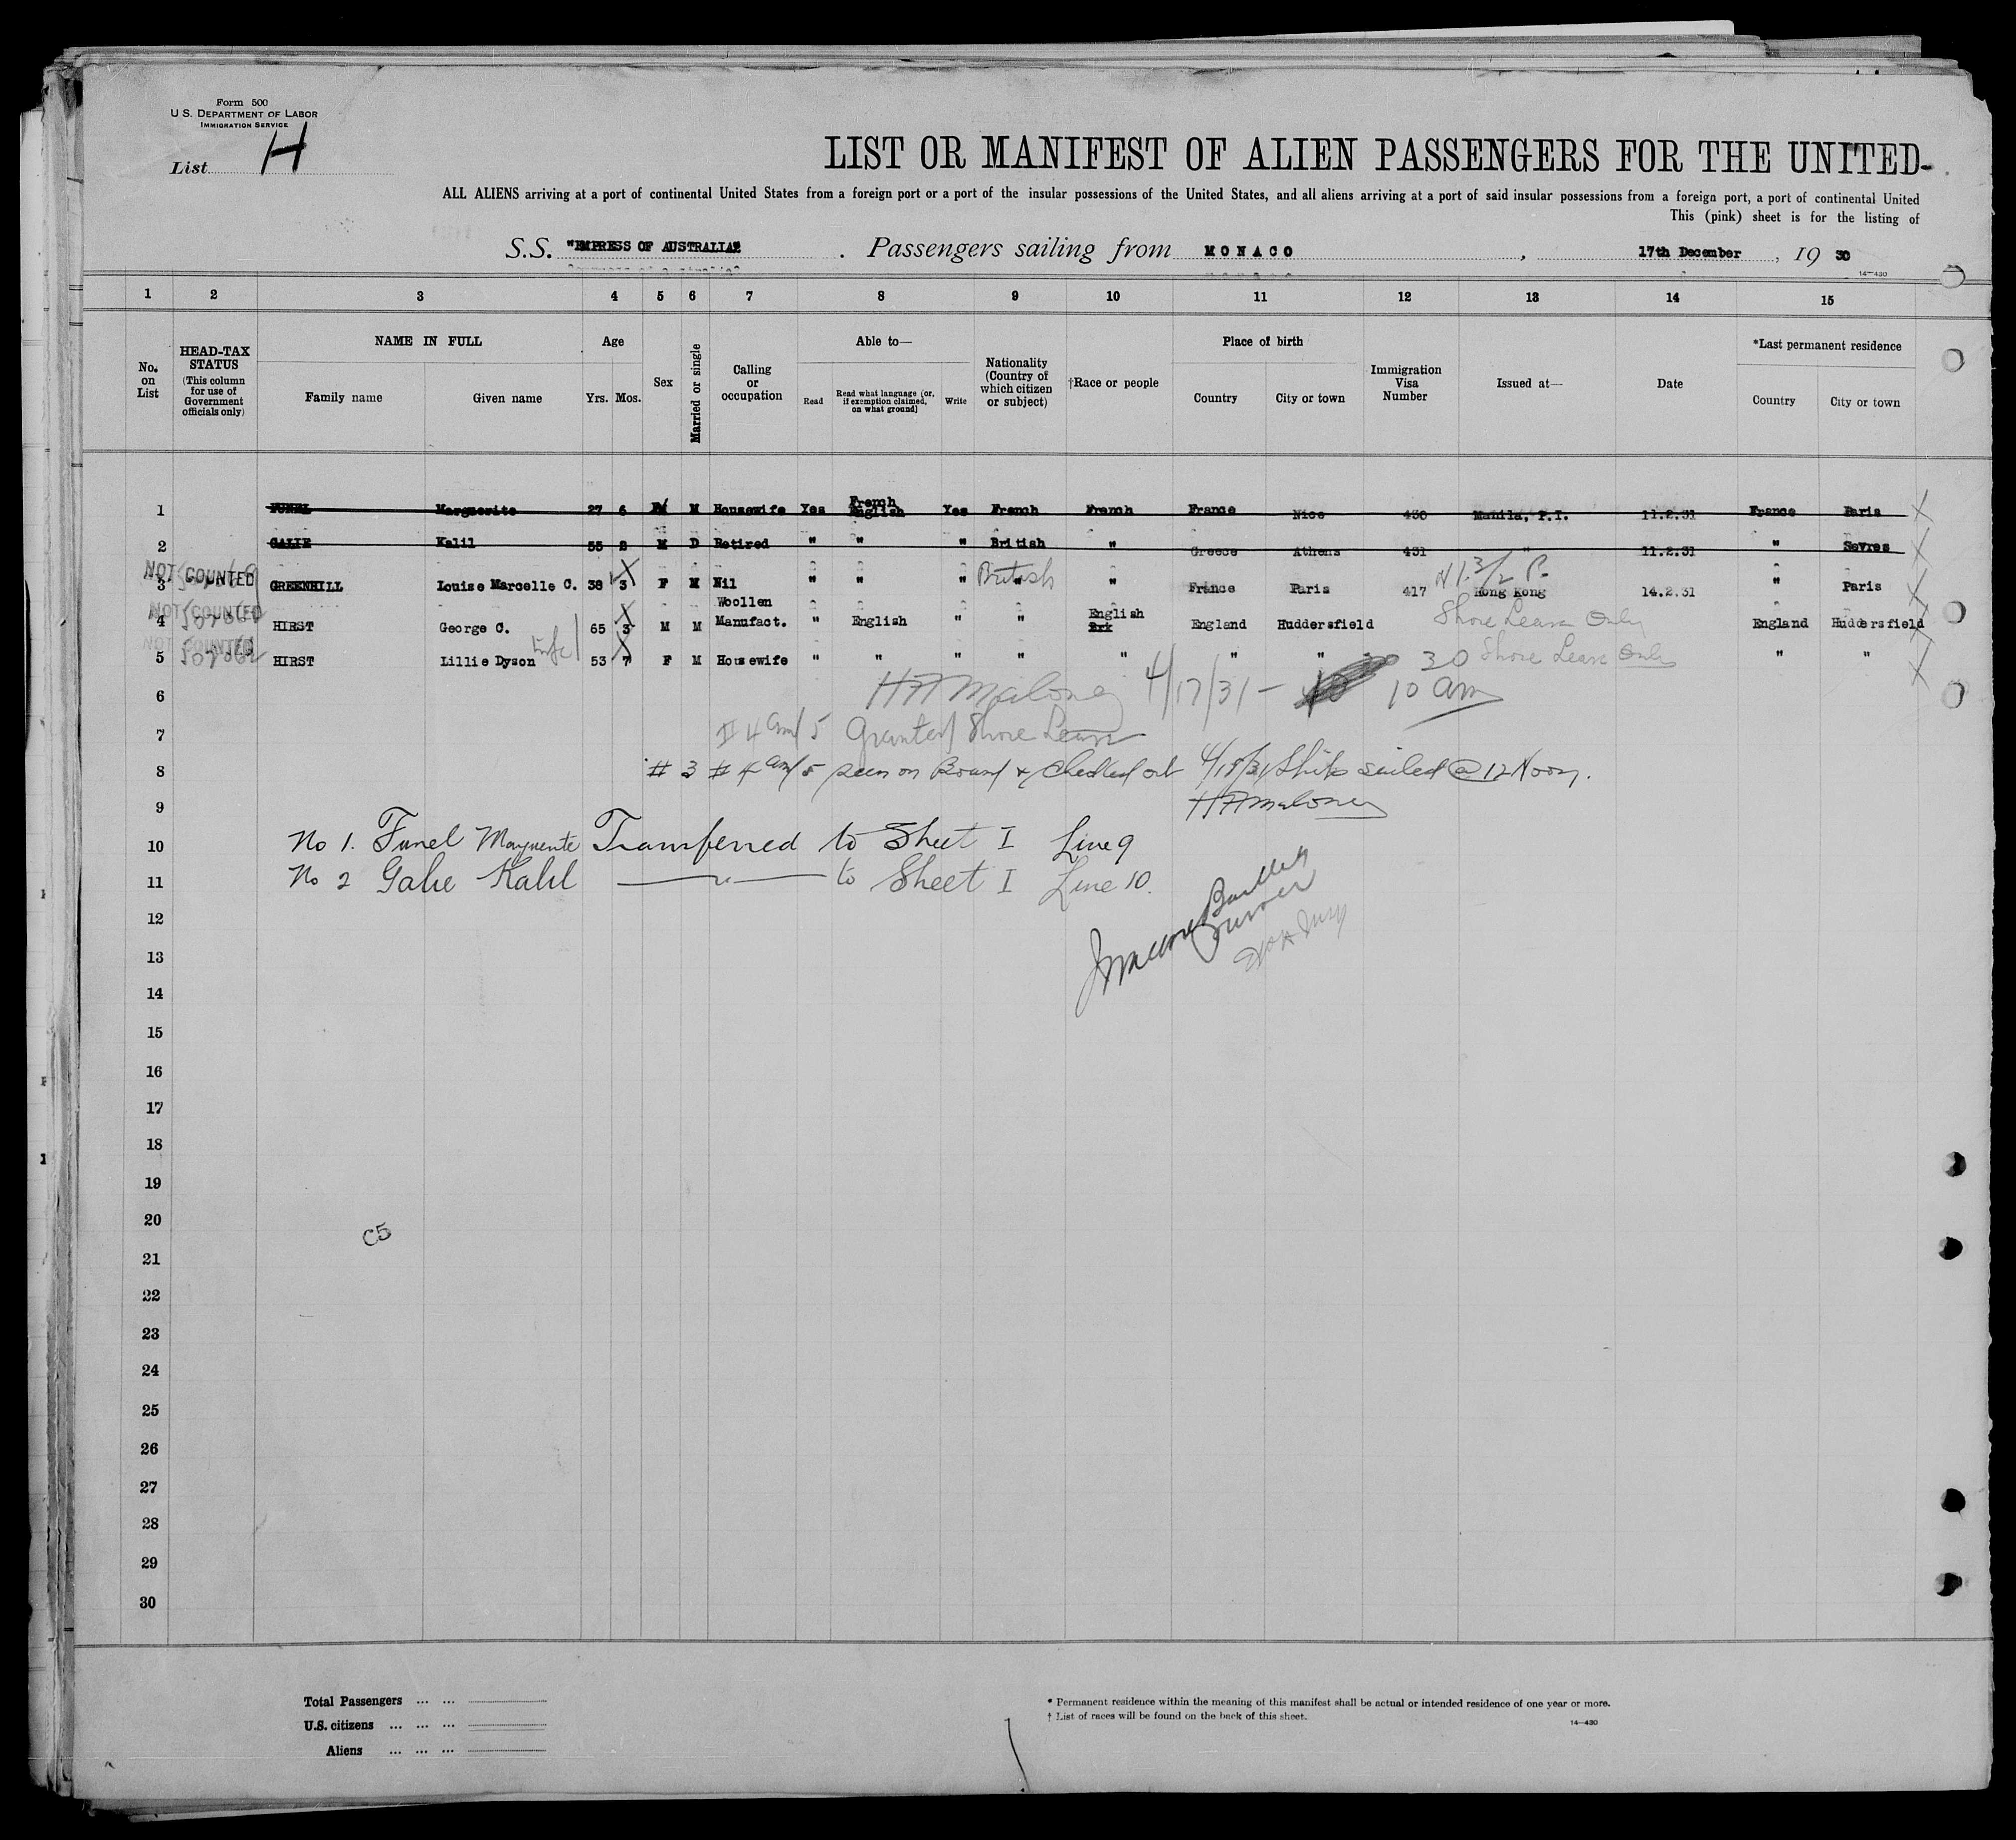 Form 500
U.S. DEPARTMENT OF LABOR
IMMIGRATION SERVICE
List H
LIST OR MANIFEST OF ALIEN PASSENGERS FOR THE UNITED
ALL ALIENS arriving at a port of continental United States from a foreign port or a port of the insular possessions of the United States, and all aliens arriving at a port of said insular possessions from a foreign port, a port of continental United
This (pink) sheet is for the listing of
S.S. "EMPRESS OF AUSTRALIA" . Passengers sailing from MONACO , 17th December , 19 30
14-430
1 2 3 4 5 6 7 8 9 10 11 12 13 14 15
No. on List
HEAD-TAX STATUS (This column for use of Government officials only)
NAME IN FULL
Family name Given name
Age
Yrs. Mos.
Sex
Married or single
Calling or occupation
Able to—
Read Read what language (or, if exemption claimed, on what ground) Write
Nationality (Country of which citizen or subject)
†Race or people
Place of birth
Country City or town
Immigration Visa Number
Issued at—
Date
*Last permanent residence
Country City or town
1 FUNEL Marguerite 27 6 M Housewife Yes French English Yes French French France Nice 430 Manila, P.I. 11.2.31 France Paris
2 GALIE Kalil 55 2 M D Retired " " " British " Greece Athens 431 " 11.2.31 " Sevres
NOT COUNTED
3 GREENHILL Louise Marcelle C. 38 3 F M Nil " " " British " " France Paris 417 Hong Kong 14.2.31 " Paris
NOT COUNTED
4 HIRST George C. 65 3 M M Woollen Manufact. " English " " English England Huddersfield Shore Leave Only England Huddersfield
NOT COUNTED
5 HIRST Lillie Dyson 53 7 F M Housewife " " " " " " " 30 Shore Leave Only " "
6 HAMaloney 4/17/31 - 10 am
7 # 4 and 5 Granted Shore Leave
8 # 3 # 4 and 5 seen on Board & checked out 4/18/31 Ship sailed @ 12 Noon.
9 HAMaloney
10 No 1. Funel Marguerite Transferred to Sheet I Line 9
11 No 2 Galie Kalil —"— to Sheet I Line 10.
12
13
14
15
16
17
18
19
20
C5
21
22
23
24
25
26
27
28
29
30
Total Passengers ... ...
U.S. citizens ... ... ...
Aliens ... ... ...
* Permanent residence within the meaning of this manifest shall be actual or intended residence of one year or more.
† List of races will be found on the back of this sheet.
14-430